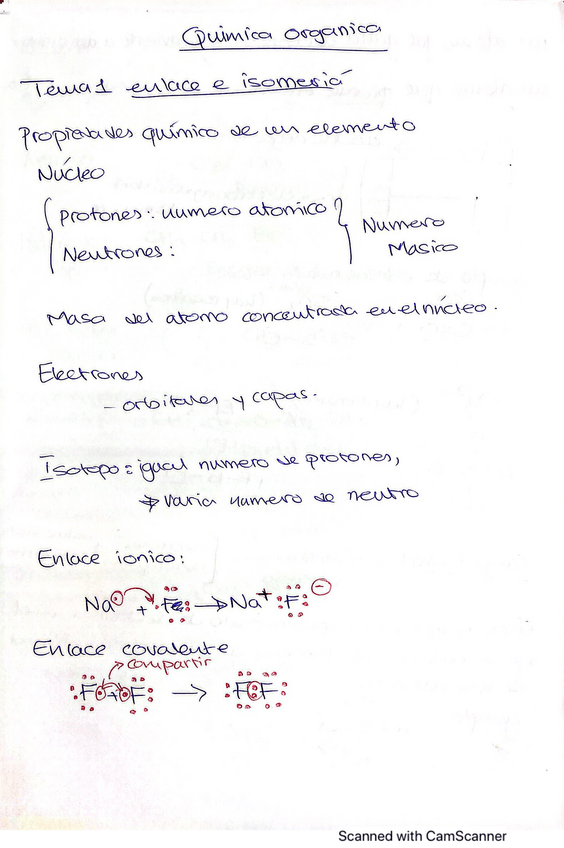 Química organica
Tema 1 enlace e isomería
Propiedades químico de un elemento
Núcleo
Protones: numero atomico
Neutrones:
Numero
Masico
Masa del atomo concentrada en el núcleo.
Electrones
- orbitales y capas.
Isotopo: igual numero de protones,
→ varia numero de neutro
Enlace ionico:
Na + F → Na⁺ F ⁻
Enlace covalente
→ compartir
F + F → F : F
Scanned with CamScanner